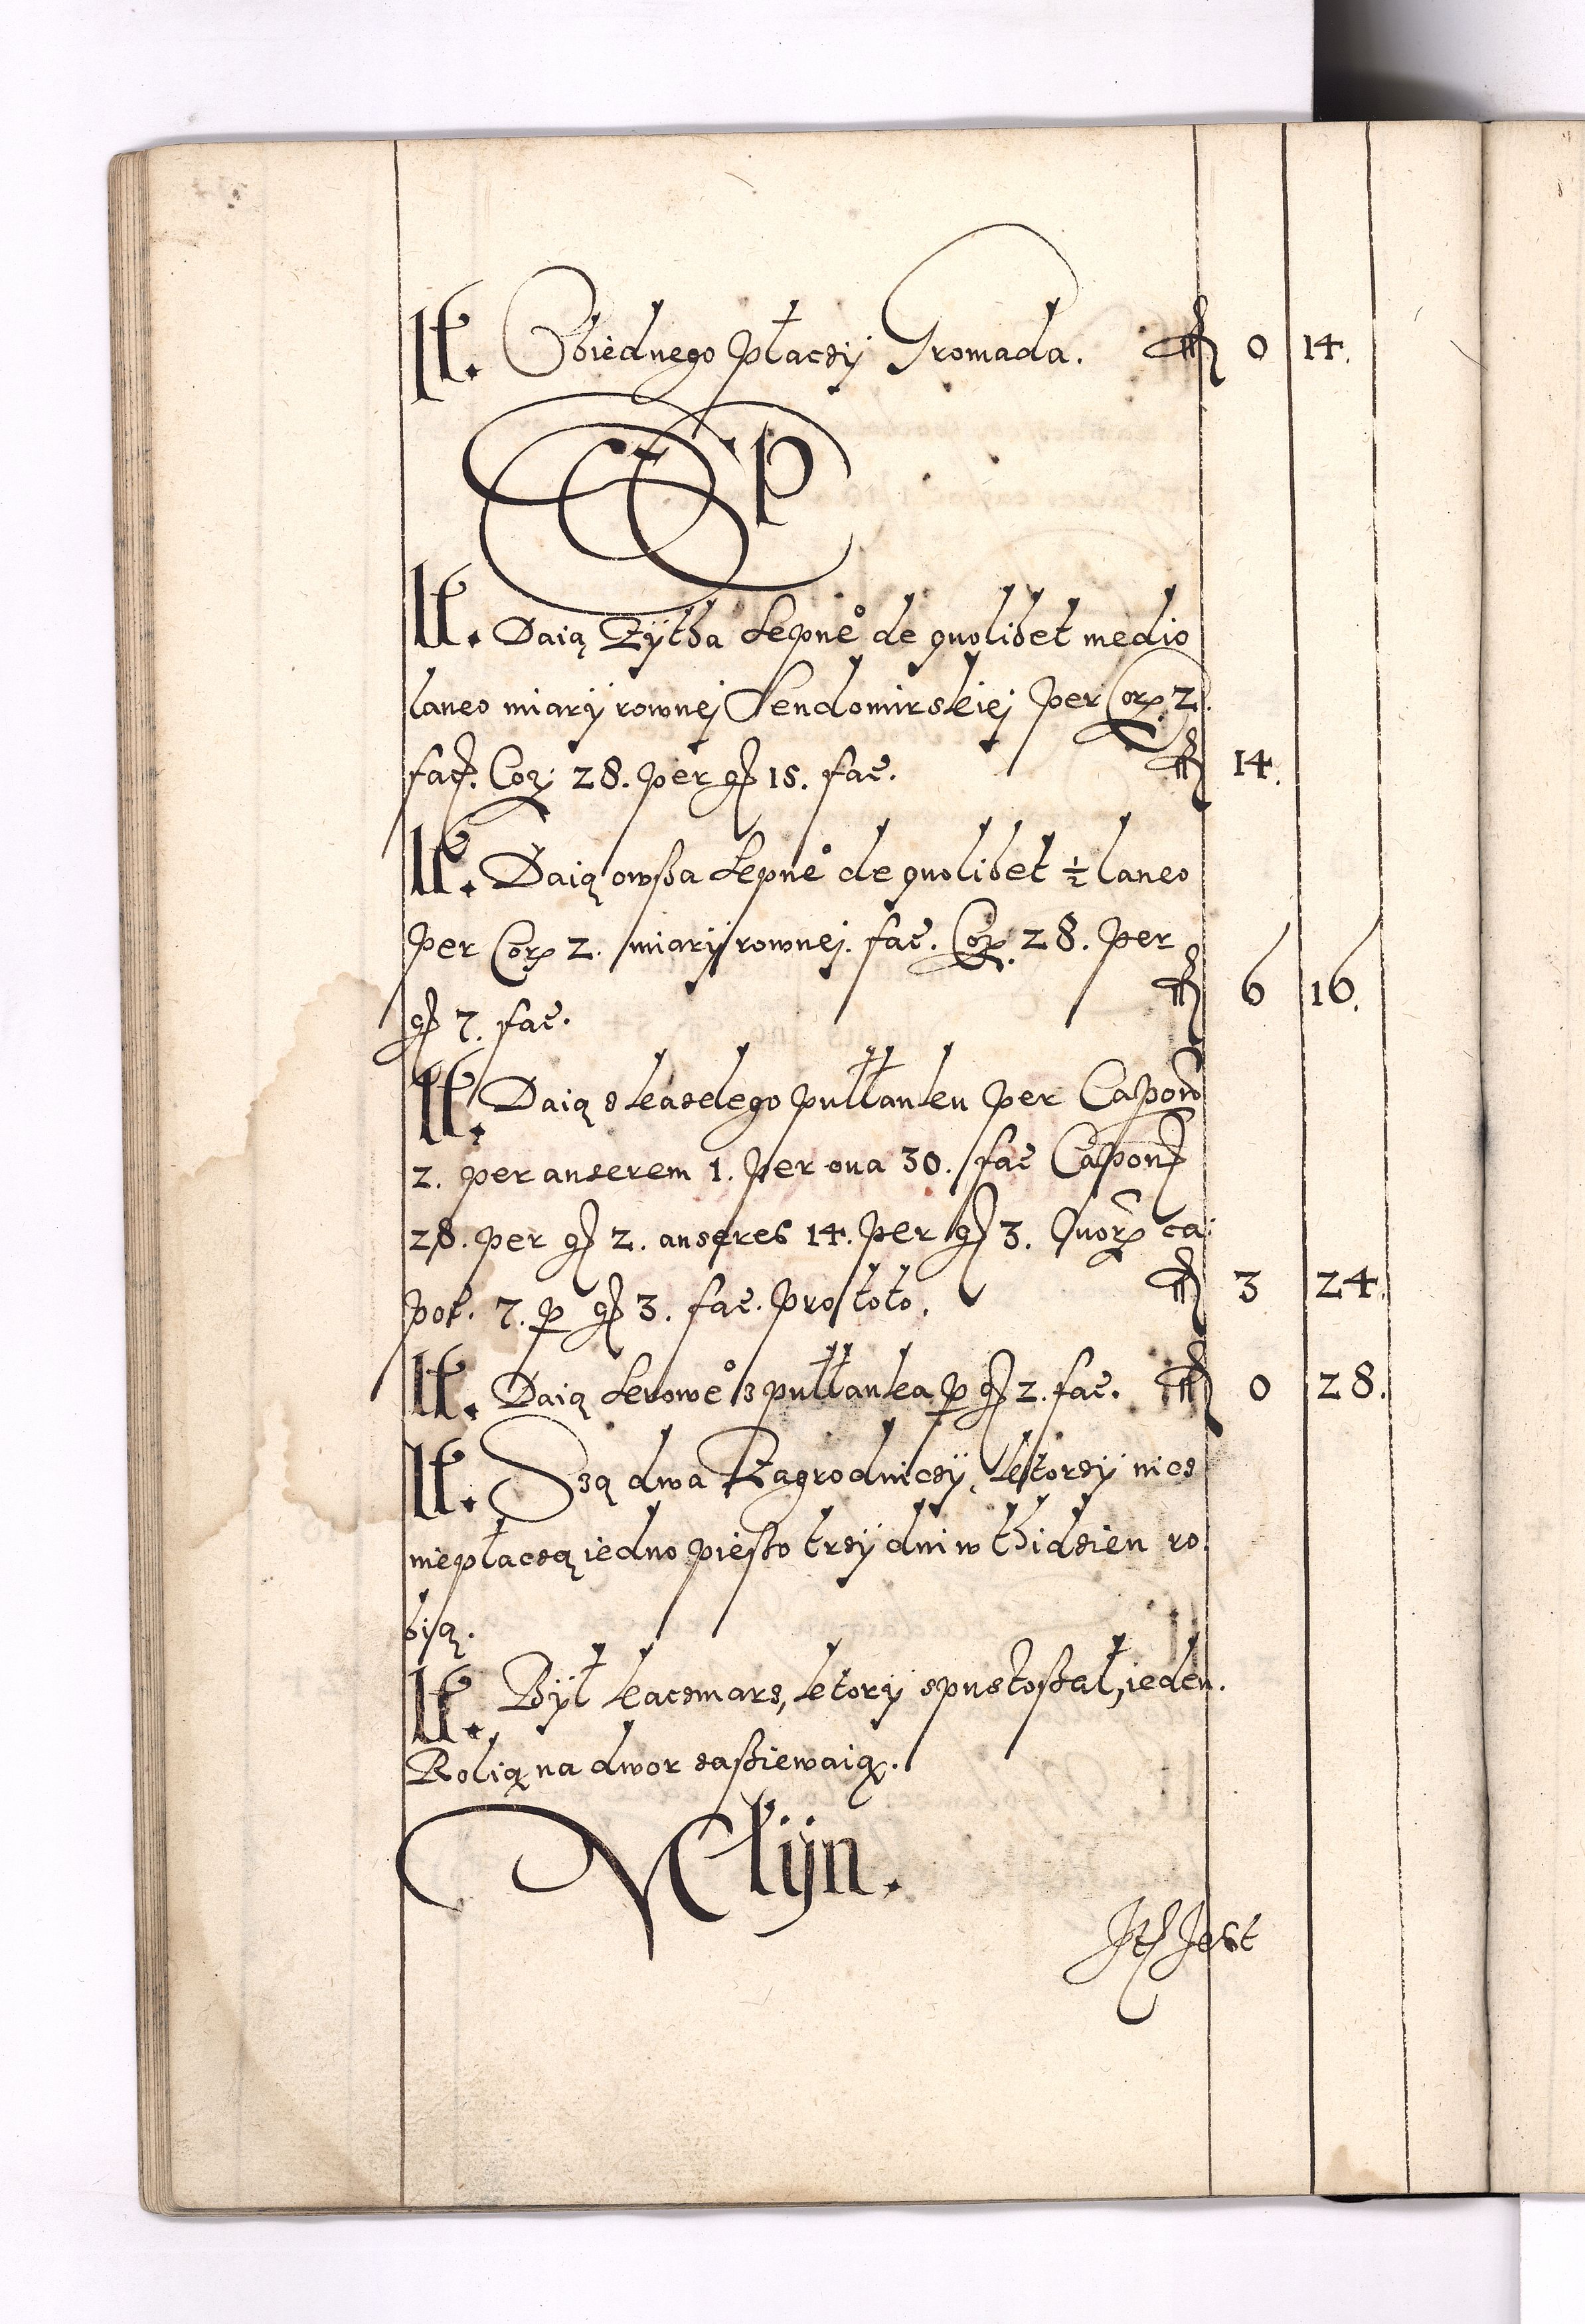 It. Obiednego płaczÿ Gromada. fl 0 14.
It. Daią Zÿtha sepne° de quolibet medio
laneo miarÿ rownej Sendomirskiej per Cor. 2.
fac. Cor. 28. per gr 15. fac. fl 14.
It. Daią owßa sepne° de quolibet ½ laneo
per Cor 2. miarÿ rownej. fac. Cor. 28. per
gr 7. fac. fl 6 16.
It. Daią z kaszdego pułłanku per Capon
2. per anserem 1. per oua 30. fac Capon
28. per gr 2. anseres 14. per gr 3. Quor ca:
pot. 7. p gr 3. fac. pro toto. fl 3 24.
It. Daią serowe° z pułłanka p gr 2. fac. fl 0 28.
It. Ssą dwa Zagrodniczÿ, ktorzÿ nicz
niepłaczą iedno pießo trzÿ dni w thidzien ro
bią.
It. Bÿł kaczmarz, ktorÿ spustoßał, ieden.
Rolią na dwor zaßiewaią.
Młÿn.
Ith Jest